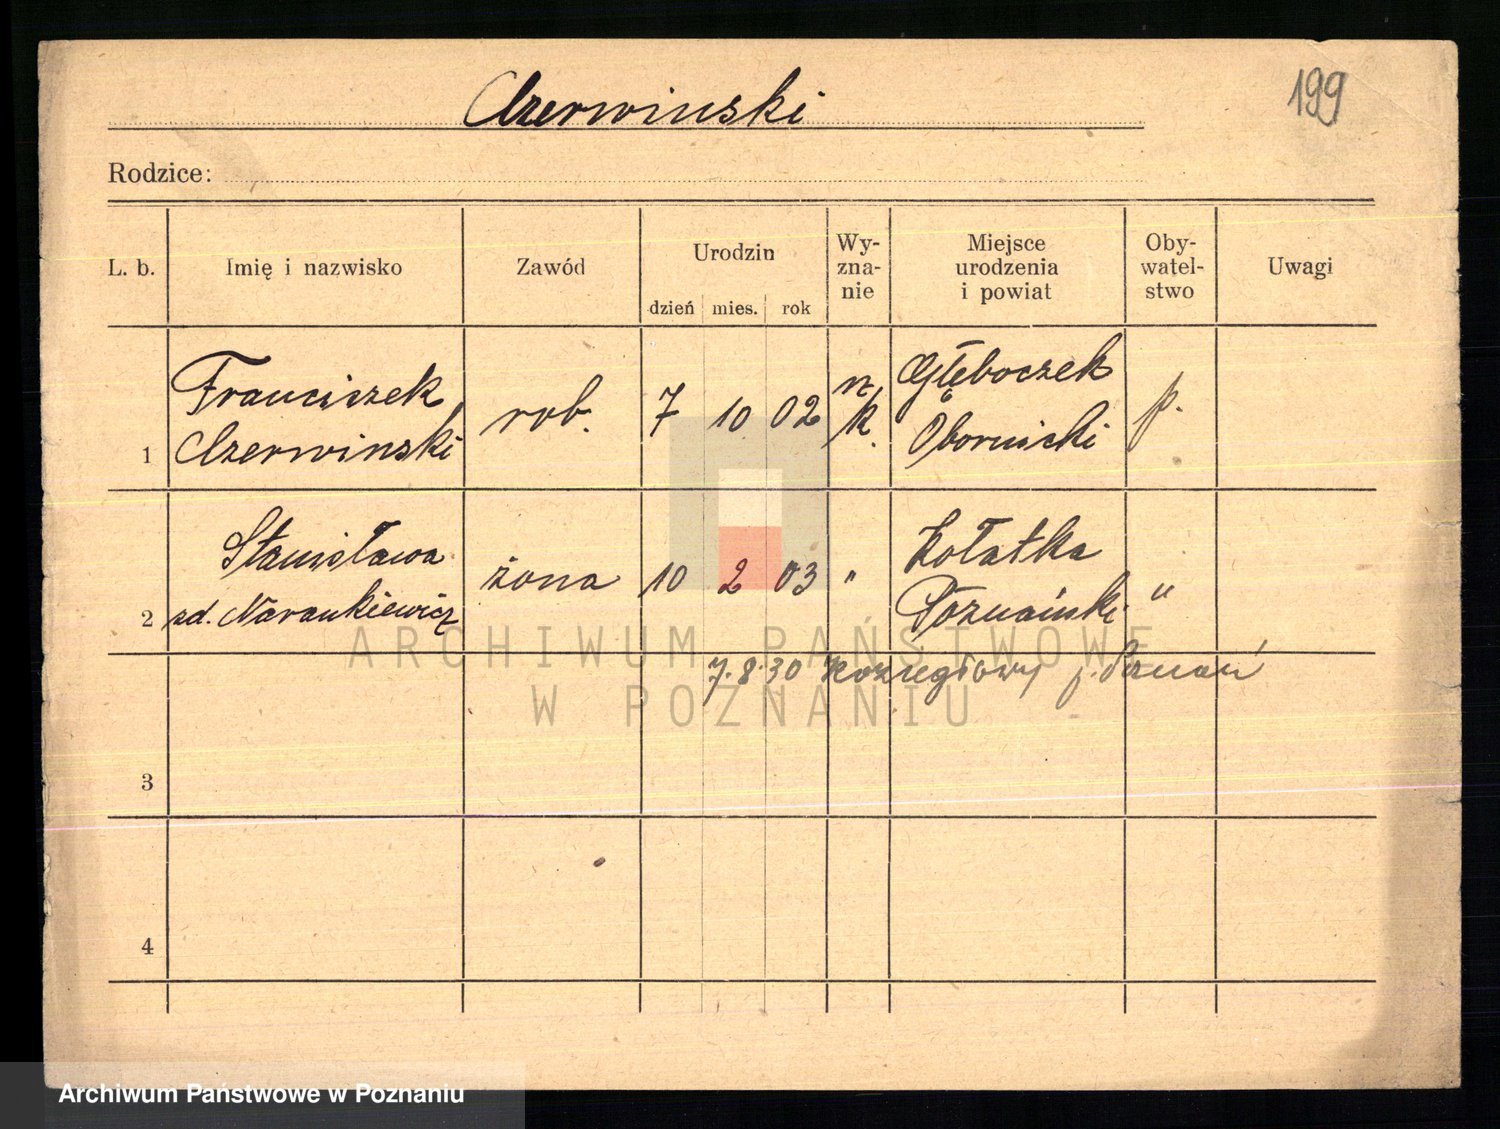 Czerwinski
199
Rodzice:
L. b.
Imię i nazwisko
Zawód
Urodzin
dzień mies. rok
Wy-
zna-
nie
Miejsce
urodzenia
i powiat
Oby-
watel-
stwo
Uwagi
1
Franciszek
Czerwinski
rob.
7 10 02
rz.
k.
Głęboczek
Obornicki
p.
2
Stanisława
zd. Narankiewicz
żona
10 2 03
"
Kołatka
Poznański
"
7.8.30 Kozregłowy p. Poznań
3
4
ARCHIWUM PAŃSTWOWE
W POZNANIU
Archiwum Państwowe w Poznaniu